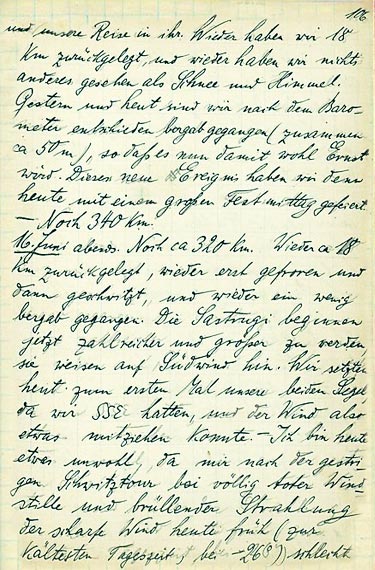 106
und unsere Reise in ihr. Wieder haben wir 18
Km zurückgelegt, und wieder haben wir nichts
anderes gesehen als Schnee und Himmel.
Gestern und heut sind wir nach dem Baro-
meter entschieden bergab gegangen (zusammen
ca 50 m), so daß es nun damit wohl Ernst
wird. Dieses neue Ereignis haben wir denn
heute mit einem großen Festmittag gefeiert.
— Noch 340 Km.
16. Juni abends. Noch ca 320 Km. Wieder ca 18
Km zurückgelegt, wieder erst gefroren und
dann geschwitzt, und wieder ein wenig
bergab gegangen. Die Sastrugi beginnen
jetzt zahlreicher und großer zu werden
sie weisen auf Südwind hin. Wir setzten
heut zum ersten Mal unsere beiden Segel,
da wir SSE hatten, und der Wind also
etwas mitziehen konnte. – Ich bin heute
etwas unwohl, da mir nach der gestri-
gen Schwitztour bei völlig toter Wind-
stille und brüllender Strahlung
der scharfe Wind heute früh (zur
kältesten Tageszeit, bei –26°) schlecht